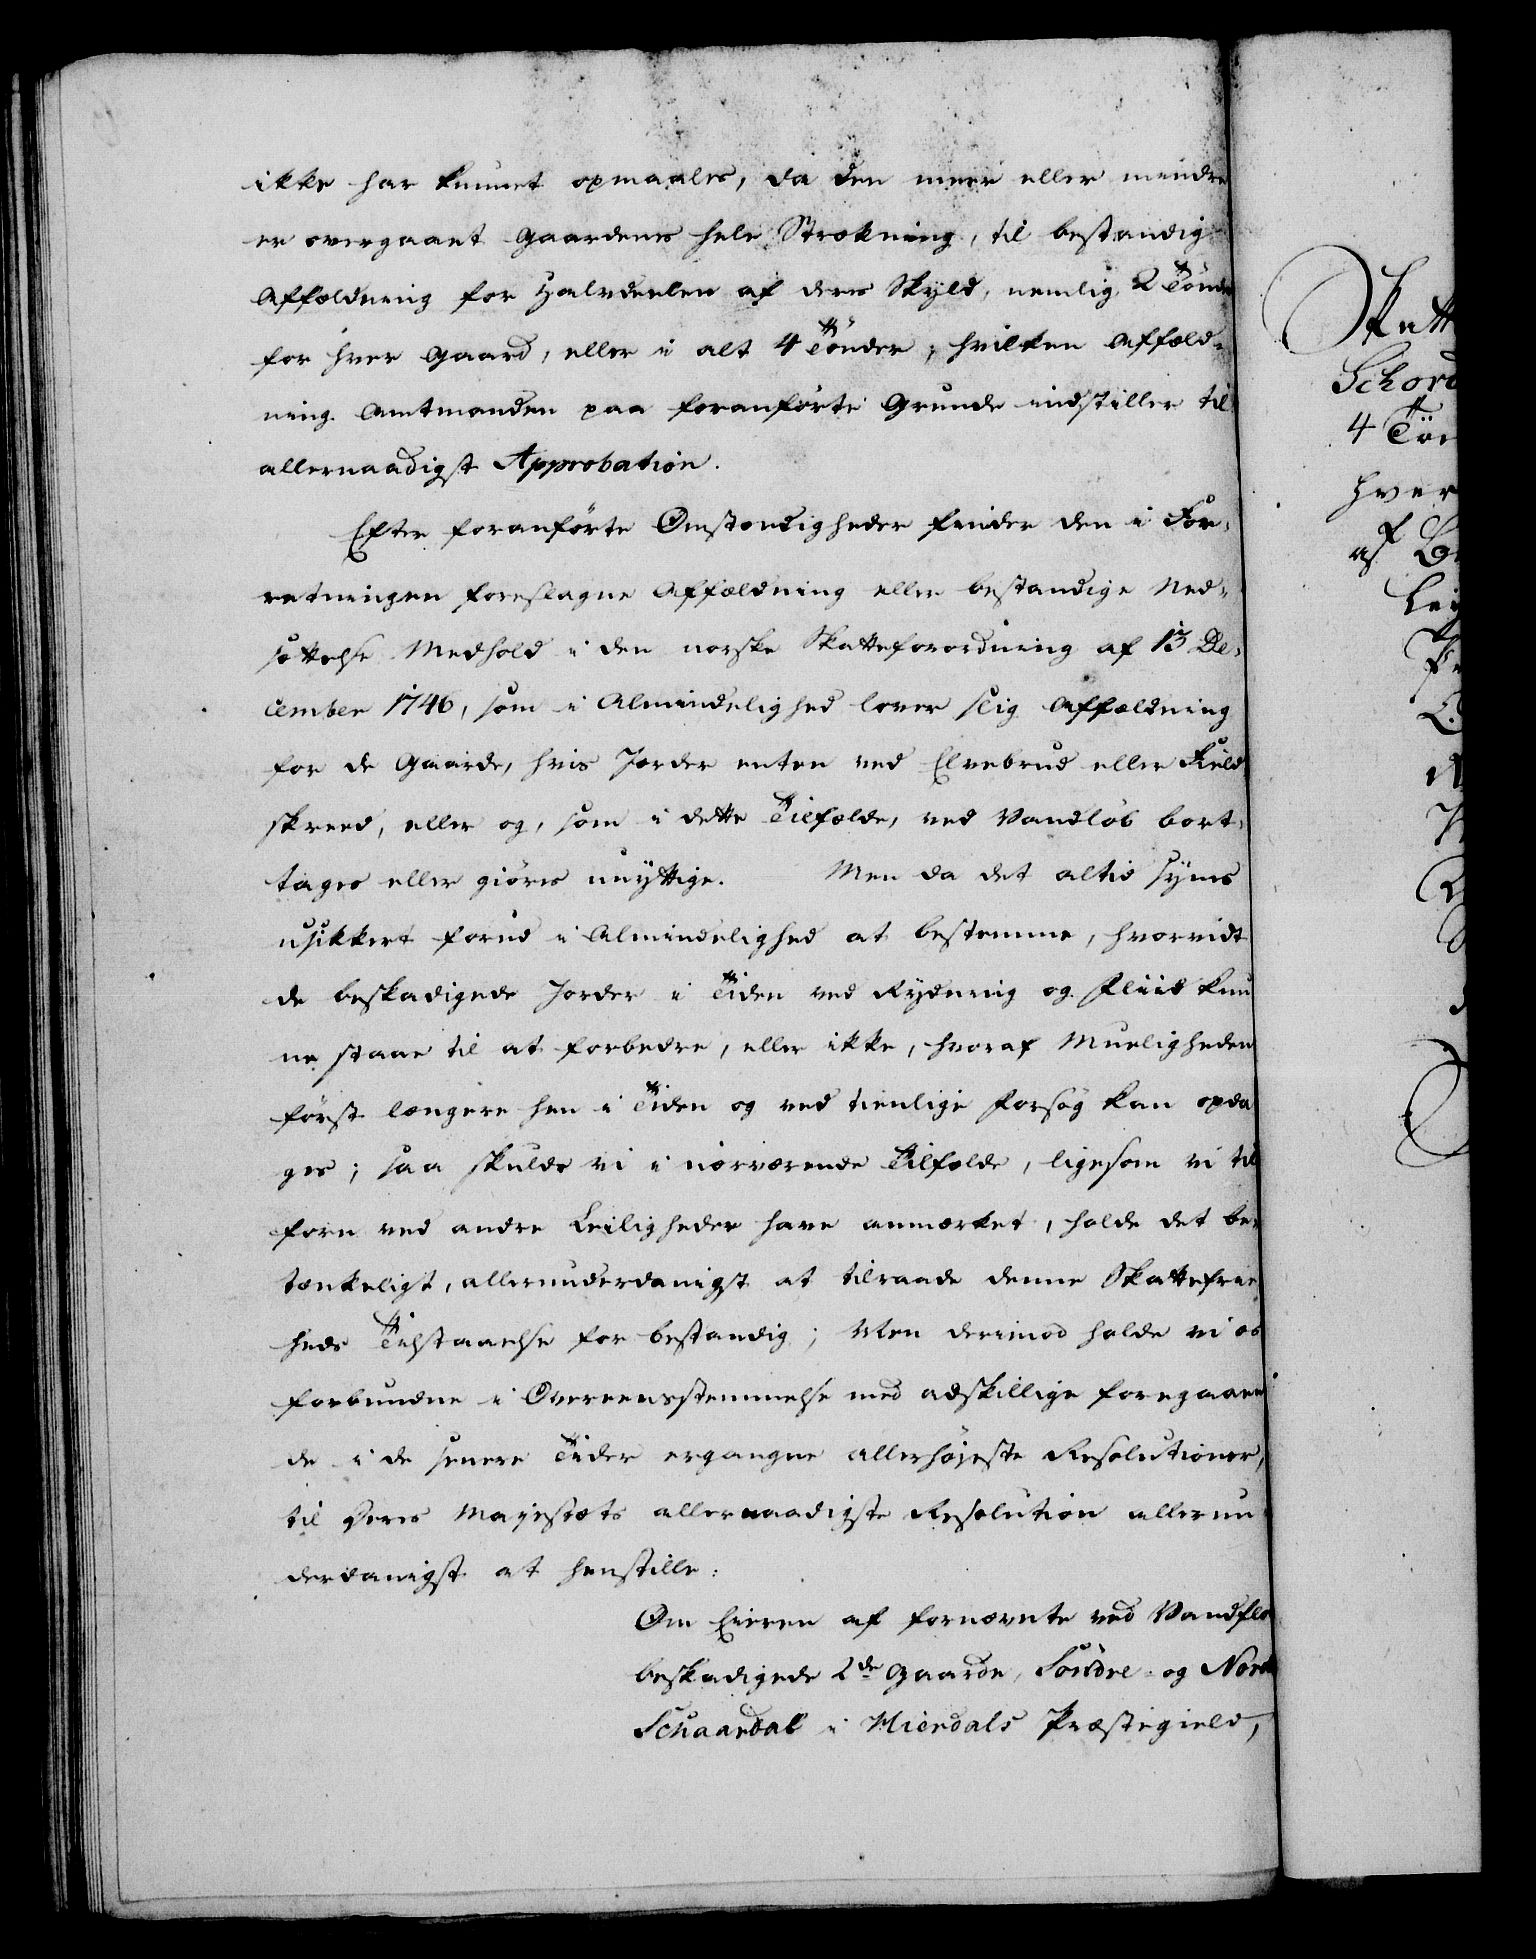 ikke har kunnet opmaales, da den meer eller mindre
er overgaaet Gaardenes hele Strækning, til bestandig
Affældning for Halvdeelen af deres Skyld, nemlig 2 Tønde
for hver Gaard, eller i alt 4 Tønder, hvilken Affæld-
ning Amtmanden paa foranførte Grunde indstiller til
allernaadigst Approbation.
Efter foranførte Omstændigheder finder den i For-
retningen foreslagne Affældning eller bestandige Ned-
sættelse Medhold i den norske Skatteforordning af 13 De-
cember 1746, som i Almindelighed lover slig Affældning
for de Gaarde, hvis Jorder enten ved Elvebrud eller Field
skreed, eller og, som i dette Tilfælde, ved Vandløb bort-
tages eller giøres unyttige. Men da det altid synes
usikkert forud i Almindelighed at bestemme, hvorvidt
de beskadigede Jorder i Tiden ved Rydning og Fliid kun
ne staae til at forbedre, eller ikke, hvoraf Mueligheden
først længere hen i Tiden og ved tienlige Forsøg kan opda
ges; saa skulde vi i nærværende Tilfælde, ligesom vi til
forn ved andre Leiligheder have anmærket, holde det be-
tænkeligt, allerunderdanigst at tilraade denne Skattefrie
heds Tilstaaelse for bestandig; Men derimod holde vi os
forbundne i Overeensstemmelse med adskillige foregaaen
de i de senere Tider ergangne allerhøjeste Resolutioner,
til Deres Majestæts allernaadigste Resolution allerun
derdanigst at henstille:
Om Eieren af fornævnte ved Vandflo
beskadigede 2de Gaarde, Søndre og Nord
Schaardal i Hierdals Præstegield,
Skatt
Schord
4 Tøn
hver
af